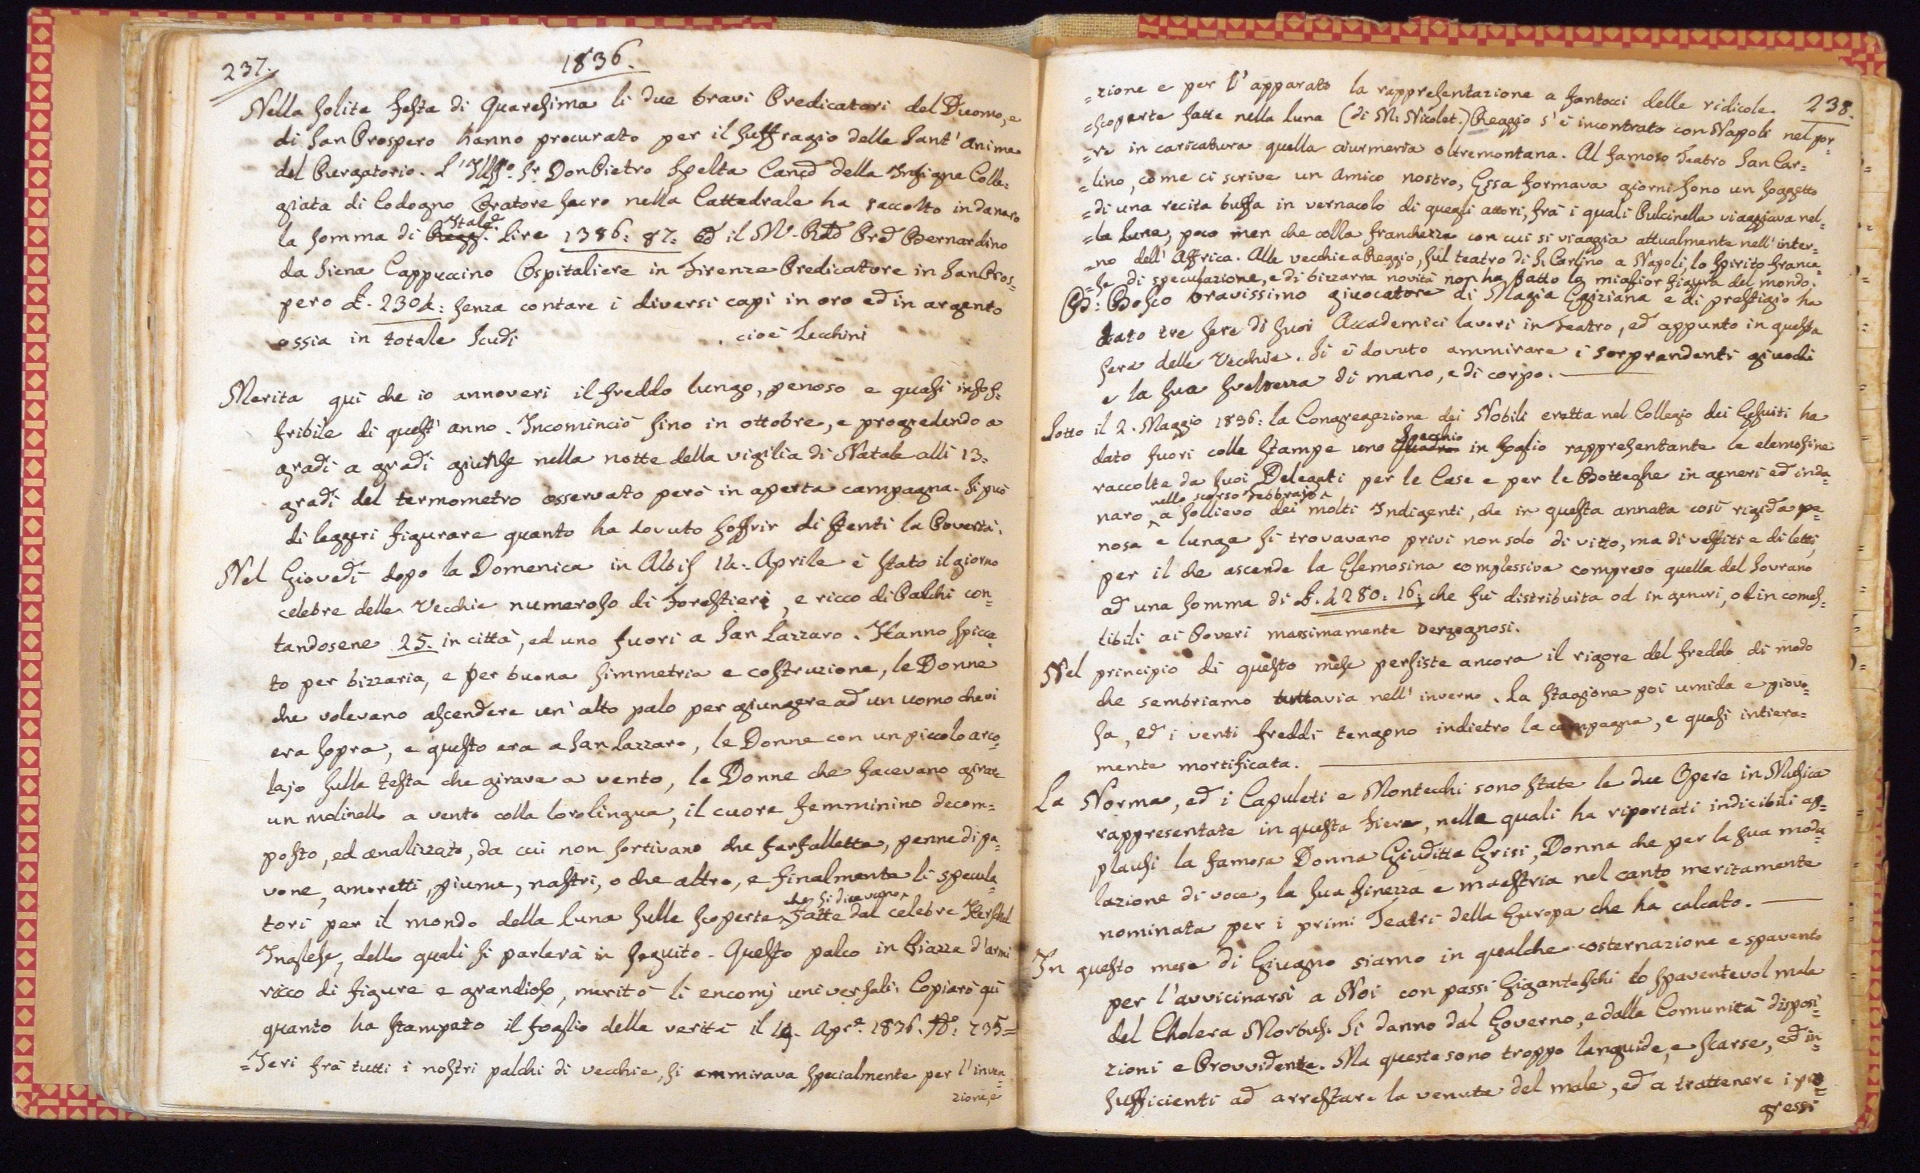 237.
1836.
Nella solita festa di Quaresima li due bravi Predicatori del Duomo, e
di San Prospero hanno procurato per il suffragio delle Sant' Anime
del Purgatorio. L'Illsso. Sr. Don Pietro Spelta Canco della Insigne Colle-
giata di Codogno Oratore sacro nella Cattedrale ha raccolto in danaro
la somma di Itale Lire 1386: 87: Ed il M. Rdo Prd Bernardino
da Siena Cappuccino Ospitaliere in Firenze Predicatore in San Pros-
pero £. 2304: senza contare i diversi capi in oro ed in argento
ossia in totale Scudi cioè Zecchini
Merita qui che io annoveri il freddo lungo, penoso e quasi insof-
fribile di quest' anno. Incominciò fino in ottobre, e progredendo a
gradi a gradi giunse nella notte della vigilia di Natale alli 13.
gradi del termometro osservato però in aperta campagna. Si può
di leggeri figurare quanto ha dovuto soffrir di stenti la Povertà.
Nel Giovedì dopo la Domenica in Albis 14. Aprile è stato il giorno
celebre delle Vecchie numeroso di Forestieri, e ricco di Palchi con-
tandosene 25. in città, ed uno fuori a San Lazzaro. Hanno spicca-
to per bizzaria, e per buona simmetria e costruzione, le Donne
che volevano ascendere un' alto palo per giungere ad un uomo che vi
era sopra, e questo era a San Lazzaro, le Donne con un piccolo arco-
lajo sulla testa che girava a vento, le Donne che facevano girar
un molinello a vento colla loro lingua, il cuore femminino decom-
posto, ed analizzato, da cui non sortivano che farfallette, penne di pa-
vone, amoretti, piume, nastri, o che altro, e finalmente li specula-
tori per il mondo della Luna sulle scoperte che si dicevano fatte dal celebre Herschel
Inglese, delle quali si parlerà in seguito. Questo palco in Piazza d'armi
ricco di figure e grandioso, meritò li encomj universali: Copiarò qui
quanto ha stampato il foglio della verità il 19. Apre. 1836. No: 735=
=Ieri frà tutti i nostri palchi di vecchie, si ammirava specialmente per l'inven-
zione, e
238.
=zione e per l'apparato la rappresentazione a fantocci delle ridicole
=scoperte fatte nella Luna (di Mr Nicolet.) Reggio s'è incontrato con Napoli nel por-
=re in caricatura quella ciurmeria oltremontana. Al famoso Teatro San Car-
=lino, come ci scrive un amico nostro, Essa formava giorni sono un soggetto
=di una recita buffa in vernacolo di quegli attori, frà i quali Pulcinella viaggiava nel-
=la Luna, poco men che colla franchezza con cui si viaggia attualmente nell'inter-
=no dell'Affrica. Alle vecchie a Reggio, sul teatro di S. Carlino a Napoli, lo spirito france-
=se di speculazione, e di bizzarra novità non ha fatto la miglior figura del mondo.
Bosco bravissimo giuocatore di Magia Egiziana e di prestigio ha
dato tre sere di suoi Accademici lavori in Teatro, ed appunto in questa
sera delle Vecchie. Si è dovuto ammirare i sorprendenti giuochi
e la sua sveltezza di mano, e di corpo.
Sotto il 2. Maggio 1836: la Congregazione dei Nobili eretta nel Collegio dei Gesuiti ha
dato fuori colle stampe uno Specchio in foglio rappresentante le elemosine
raccolte da suoi Delegati per le Case e per le Botteghe in generi ed in da-
naro nello scorso Febbrajo a sollievo dei molti Indigenti, che in questa annata così rigida pe-
nosa e lunga si trovavano privi non solo di vitto, ma di vestiti e di letti,
per il che ascende la Elemosina complessiva compreso quella del Sovrano
ad una somma di £. 4280: 16; che fù distribuita od in generi, od in comes-
tibili ai Poveri massimamente vergognosi.
Nel principio di questo mese persiste ancora il rigore del freddo di modo
che sembriamo tuttavia nell'inverno. La stagione poi umida e piovo-
sa, ed i venti freddi tengono indietro la campagna, e quasi intiera-
mente mortificata.
La Norma, ed i Capuleti e Montecchi sono state le due Opere in Musica
rappresentate in questa fiera, nelle quali ha riportati indicibili ap-
plausi la famosa Donna Giuditta Grisi, Donna che per la sua modu-
lazione di voce, la sua finezza e maestria nel canto meritamente
nominata per i primi Teatri della Europa che ha calcato.
In questo mese di Giugno siamo in qualche costernazione e spavento
per l'avvicinarsi a Noi con passi Giganteschi lo spaventevol male
del Cholera Morbus. Si danno dal Governo, e dalla Comunità disposi-
zioni e Provvidenze. Ma queste sono troppo languide, e scarse, ed in-
sufficienti ad arrestare la venuta del male, ed a trattenere i pro-
gressi